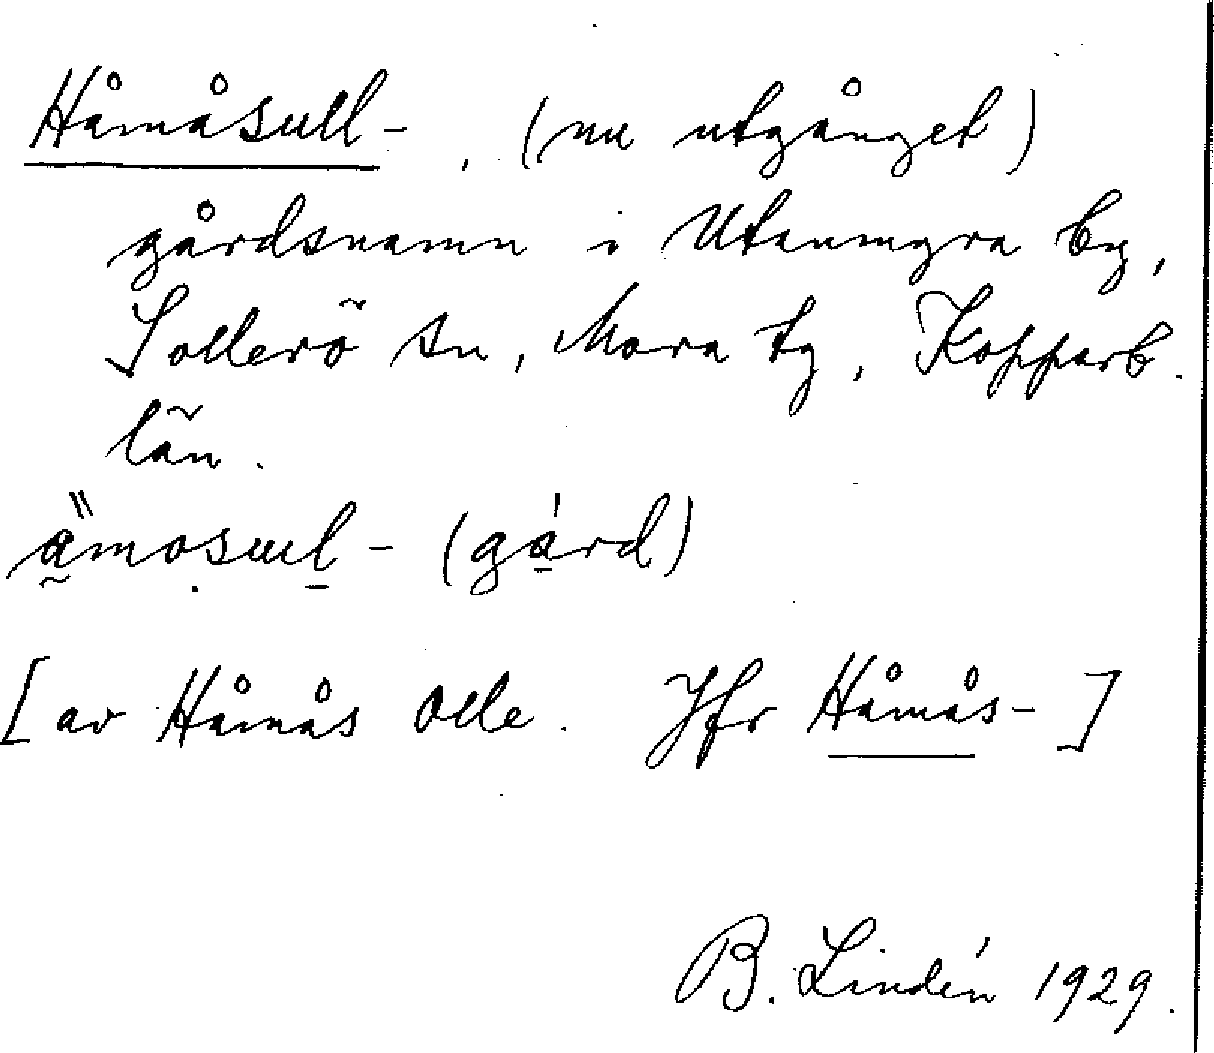 Håmåsull-, (nu utgånget)
gårdsnamn i Utanmyra by,
Sollerö sn, Mora tg, Kopparb.
län.
(gård)
[av Håmås Olle. Jfr Håmås-]
B. Lindén 1929.